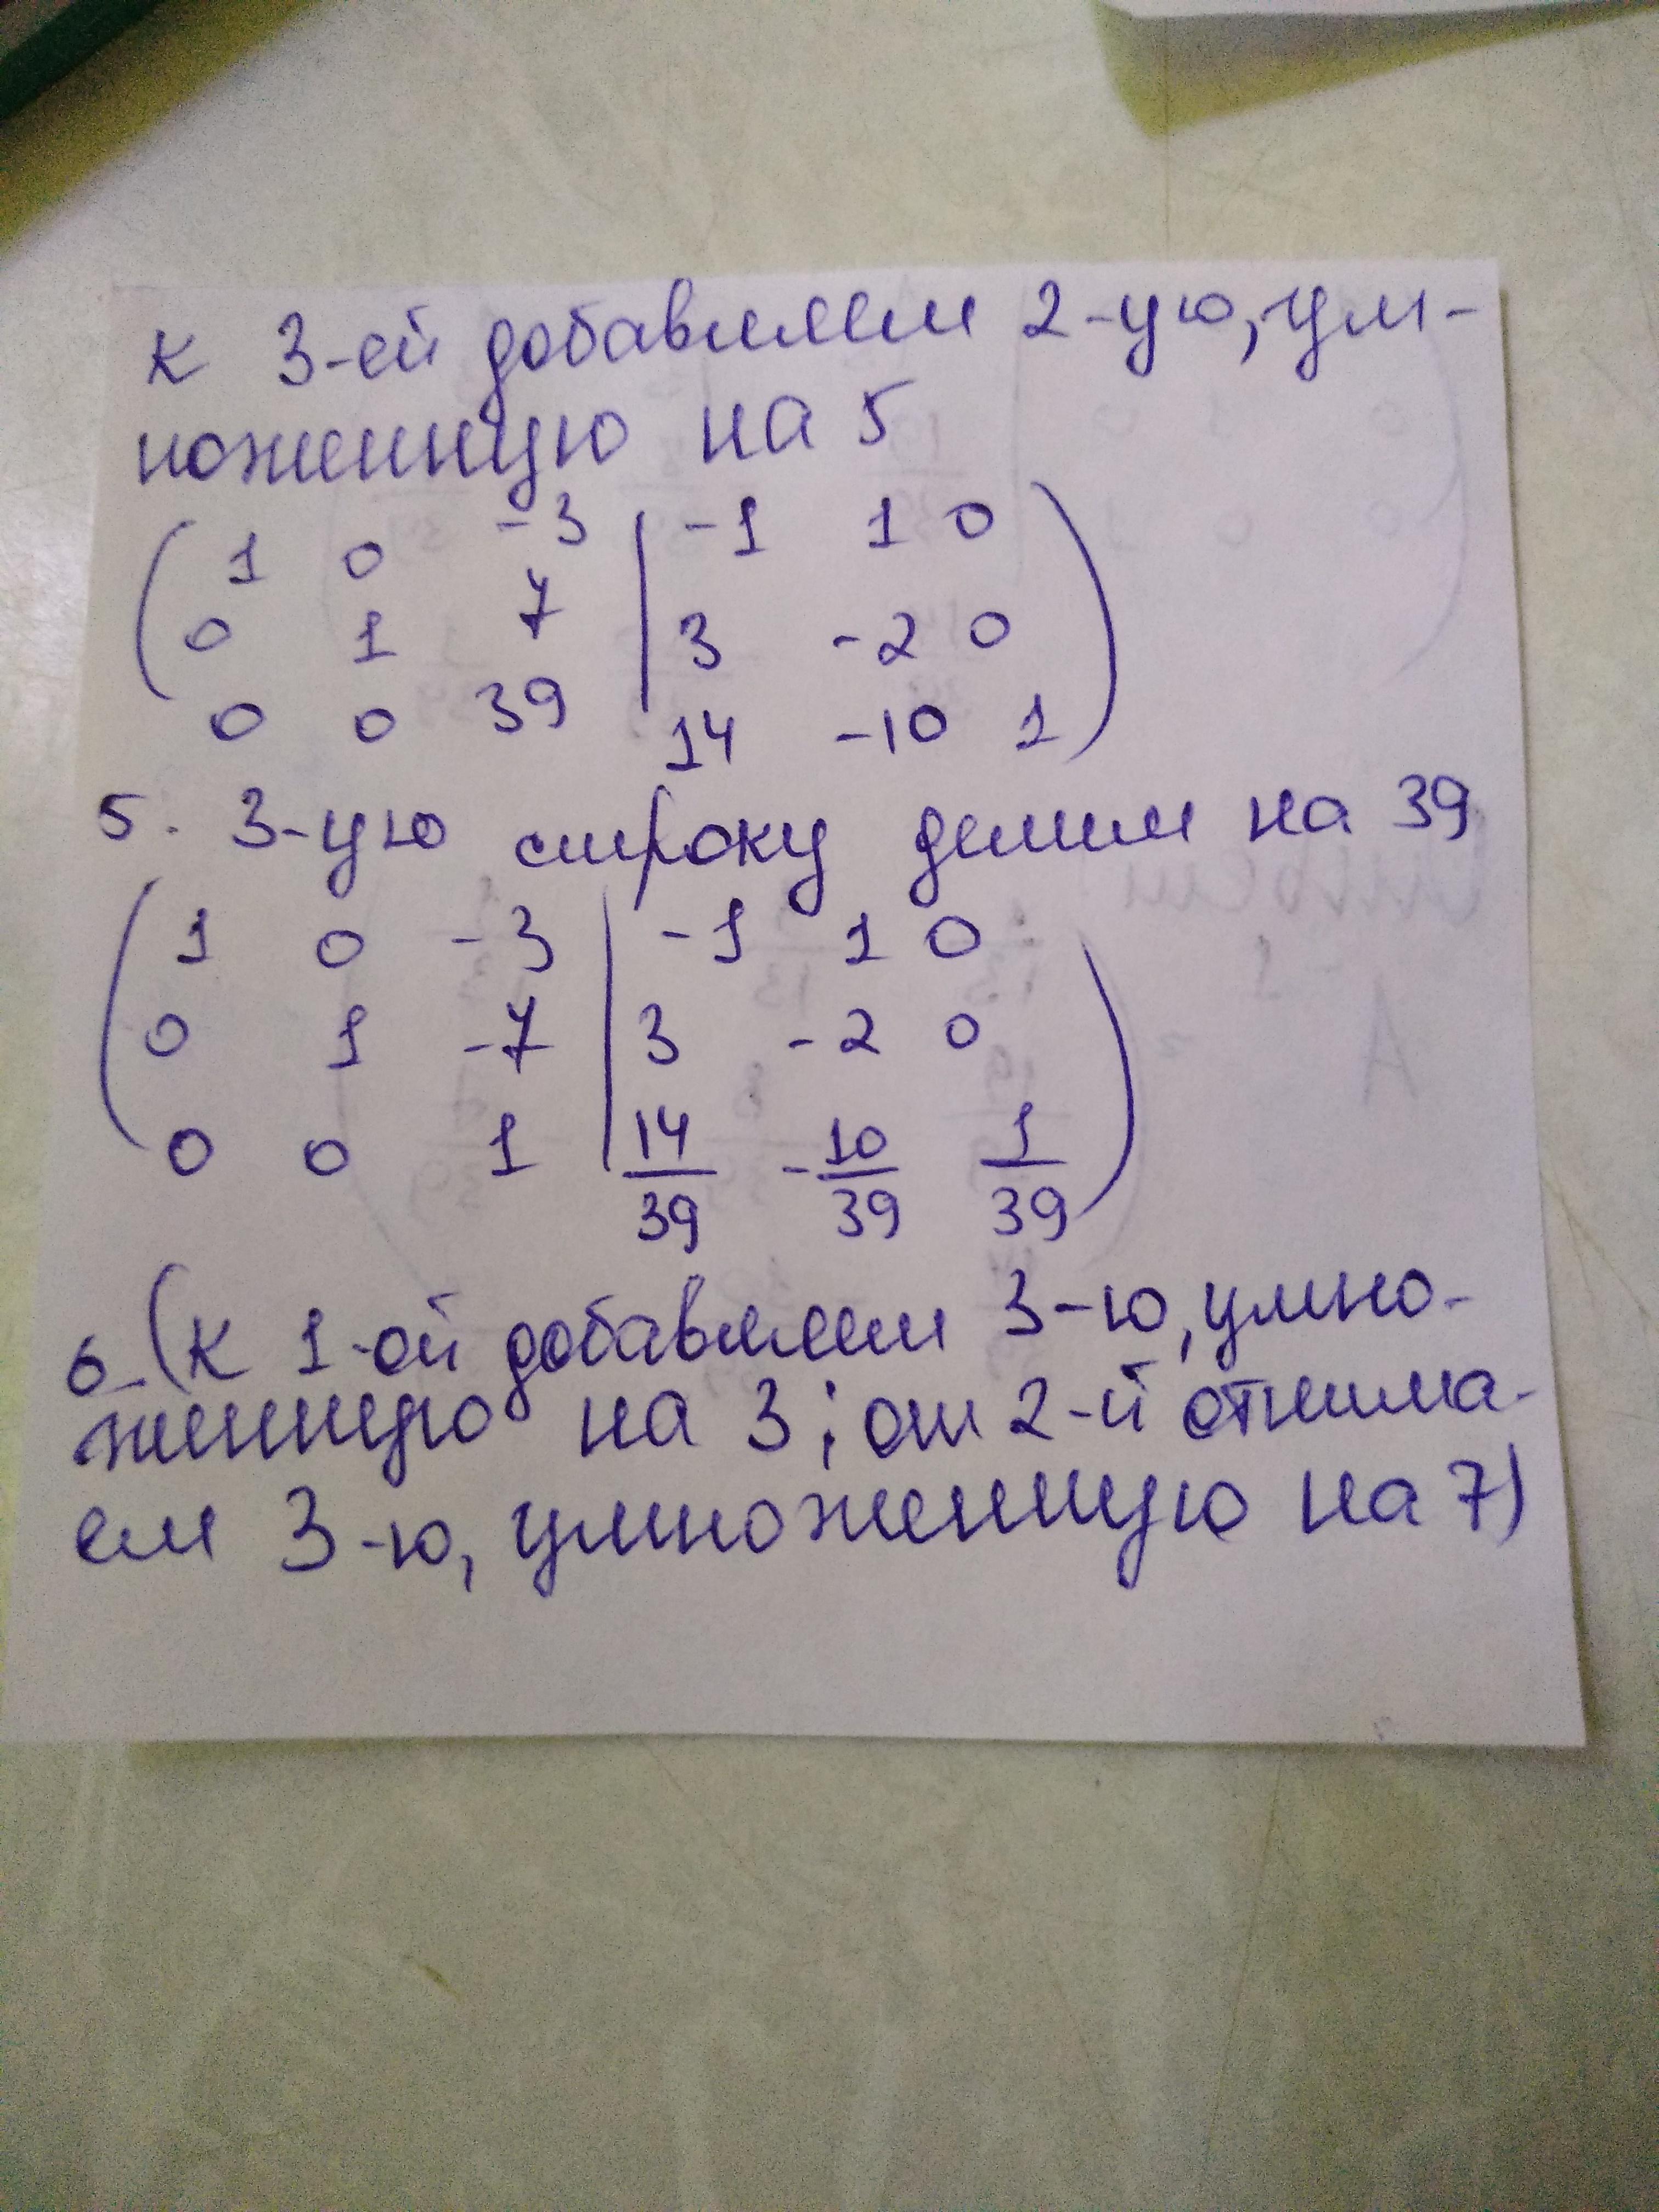 к 3-ей добавляем 2-ую, ум-
ноженную на 5
( 1 0 -3 | -1 1 0 )
0 1 7 | 3 -2 0
0 0 39 | 14 -10 1
5. 3-ую строку делим на 39
( 1 0 -3 | -1 1 0 )
0 1 -7 | 3 -2 0
0 0 1 | 14/39 -10/39 1/39
6. (к 1-ой добавляем 3-ю, умно-
женную на 3; от 2-й отнима-
ем 3-ю, умноженную на 7)